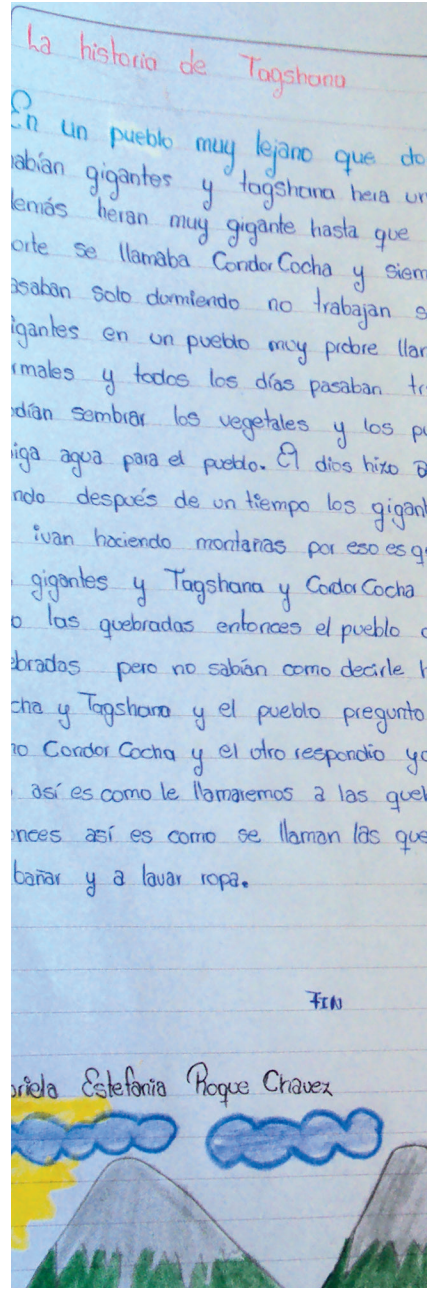 La historia de Tagshana
En un pueblo muy lejano que do
abían gigantes y tagshana hera un
demás heran muy gigante hasta que
orte se llamaba Condor Cocha y siem
asaban solo durmiendo no trabajan s
igantes en un pueblo muy probre llar
rmales y todos los días pasaban tr
dían sembrar los vegetales y los pu
iga agua para el pueblo. El dios hizo
ndo después de un tiempo los gigant
ivan haciendo montañas por eso es q
gigantes y Tagshana y CondorCocha
o las quebradas entonces el pueblo
ebradas pero no sabían como decirle
cha y Tagshana y el pueblo pregunto
no Condor Cocha y el otro respondio yo
así es como le llamaremos a las que
onces así es como se llaman las que
bañar y a lavar ropa.
FIN
riela Estefania Roque Chavez